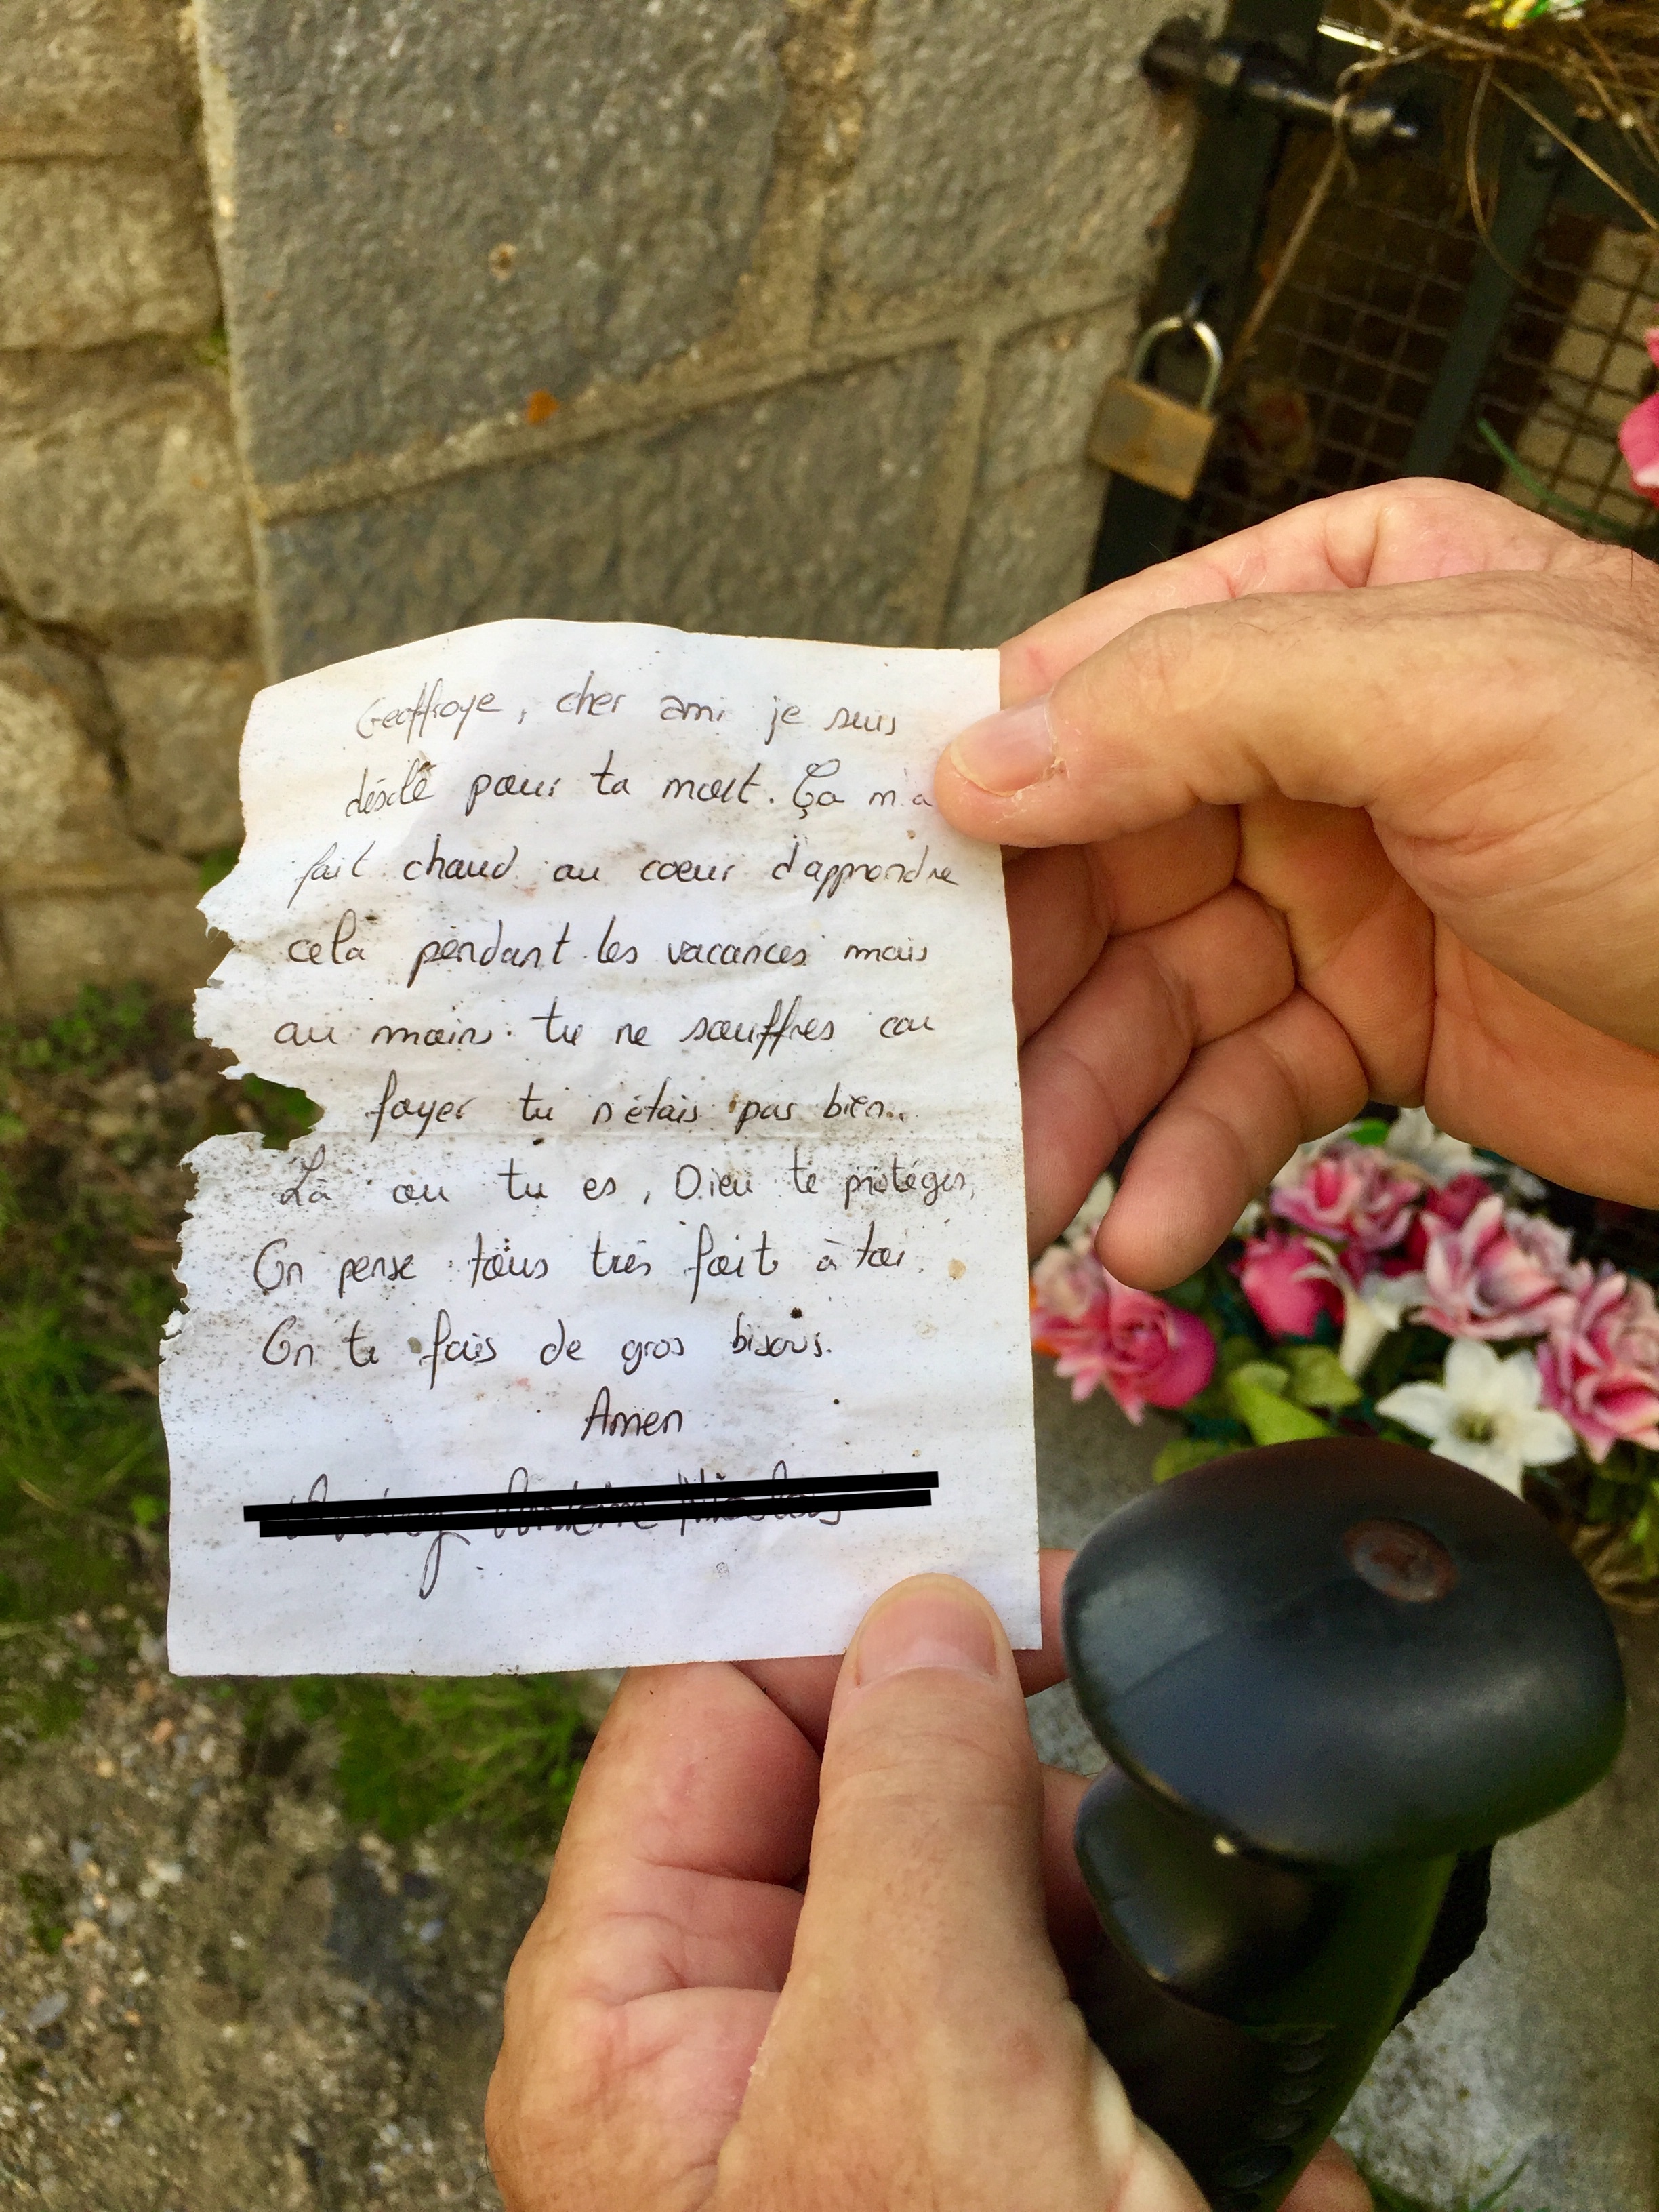 Geoffroye, cher ami je suis
désolé pour ta mort. Ça m'a
fait chaud au coeur d'apprendre
cela pendant les vacances mais
au moins tu ne souffres car
foyer tu n'étais pas bien..
Là ou tu es, Dieu te protèges,
On pense tous très forts à toi.
On te fais de gros bisous.
Amen